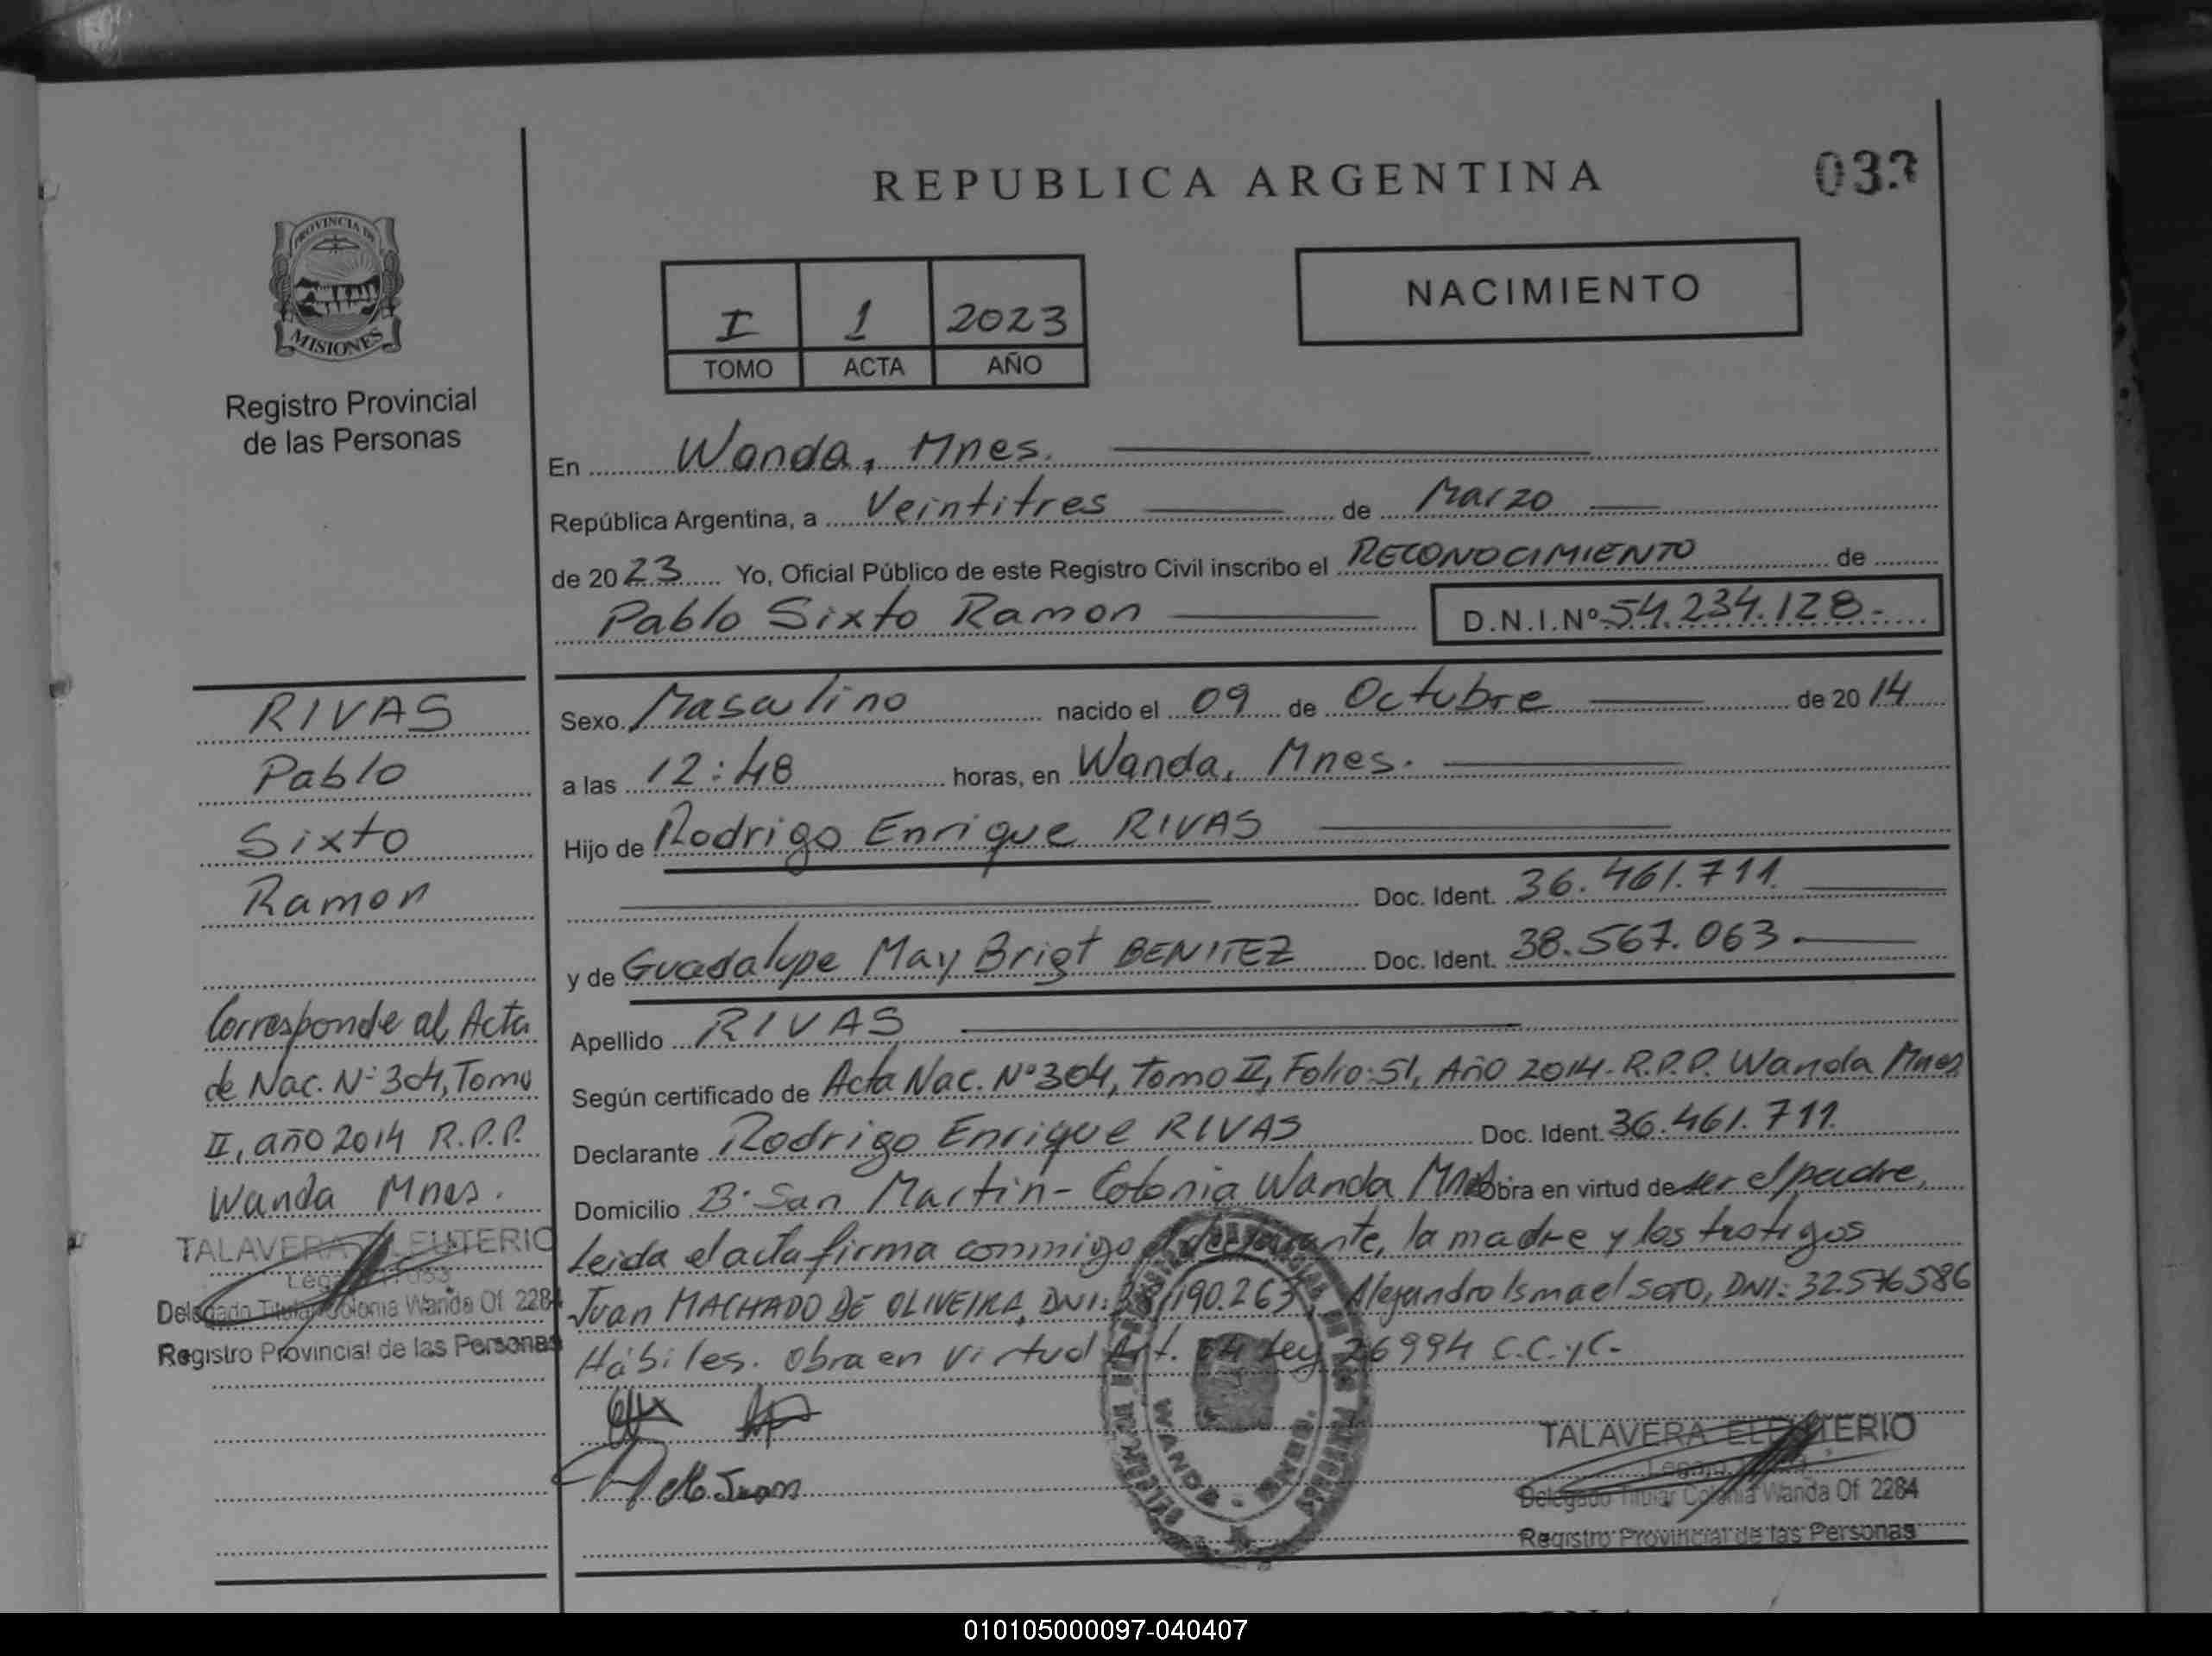 REPUBLICA ARGENTINA
PROVINCIA DE
MISIONES
Registro Provincial
de las Personas
I 1 2023
TOMO ACTA AÑO
NACIMIENTO
En Wanda, Mnes.
República Argentina, a Veintitres de Marzo
de 2023 Yo, Oficial Público de este Registro Civil inscribo el RECONOCIMIENTO de
Pablo Sixto Ramon D.N.I.Nº 54.234.128.-
RIVAS
Pablo
Sixto
Ramon
Corresponde al Acta
de Nac. Nº 304, Tomo
II, año 2014 R.P.P.
Wanda Mnes.
TALAVERA ELEUTERIO
Delegado Titular Colonia Wanda Of. 2284
Registro Provincial de las Personas
Sexo Masculino nacido el 09 de Octubre de 2014
a las 12:48 horas, en Wanda, Mnes.
Hijo de Rodrigo Enrique RIVAS
Doc. Ident. 36.461.711.
y de Guadalupe May Brigt BENITEZ Doc. Ident. 38.567.063.
Apellido RIVAS
Según certificado de Acta Nac. Nº 304, Tomo II, Folio: 51, Año 2014. R.P.P. Wanda Mnes
Declarante Rodrigo Enrique RIVAS Doc. Ident. 36.461.711.
Domicilio Bº San Martin - Colonia Wanda Mnes Obra en virtud de ser el padre,
Leida el acta firma conmigo el declarante, la madre y los testigos
Juan MACHADO DE OLIVEIRA, DNI: Alejandro Ismael SOTO, DNI: 32.576586
Hábiles. Obra en virtud Art. Ley 26994 C.C. y C.
Juan
WANDA - MNES.
TALAVERA ELEUTERIO
Legajo
Delegado Titular Colonia Wanda Of. 2284
Registro Provincial de las Personas
010105000097-040407